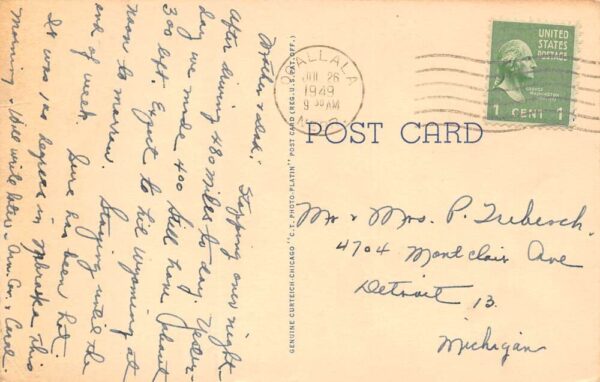 Mother & Dad: Stopping over night -
After driving 480 miles to day. Yester-
day we made 400 still have about
300 left. Expect to hit Wyoming at
noon to morrow. Staying until the
end of week. Sure has been hot
It was 100 degrees in Nebraska this
morning. Will write later -
& Carol
GENUINE CURTEICH-CHICAGO "C.T. PHOTO-PLATIN" POST CARD (REG. U.S. PAT. OFF.)
OGALLALA
26
1949
9 30 AM
UNITED
STATES
POSTAGE
GEORGE
WASHINGTON
1 CENT 1
POST CARD
Mr & Mrs. P.
4704 Montclair Ave
Detroit 13.
Michigan